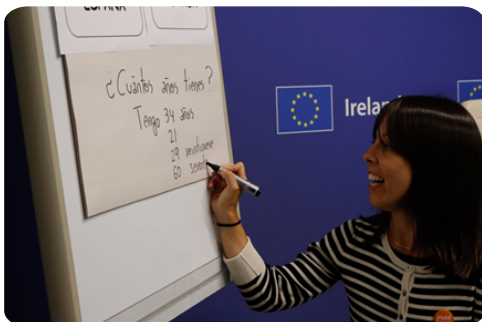 ESPAÑA
¿Cuántos años tienes?
Tengo 34 años
21
29 veintinueve
60
Irelan